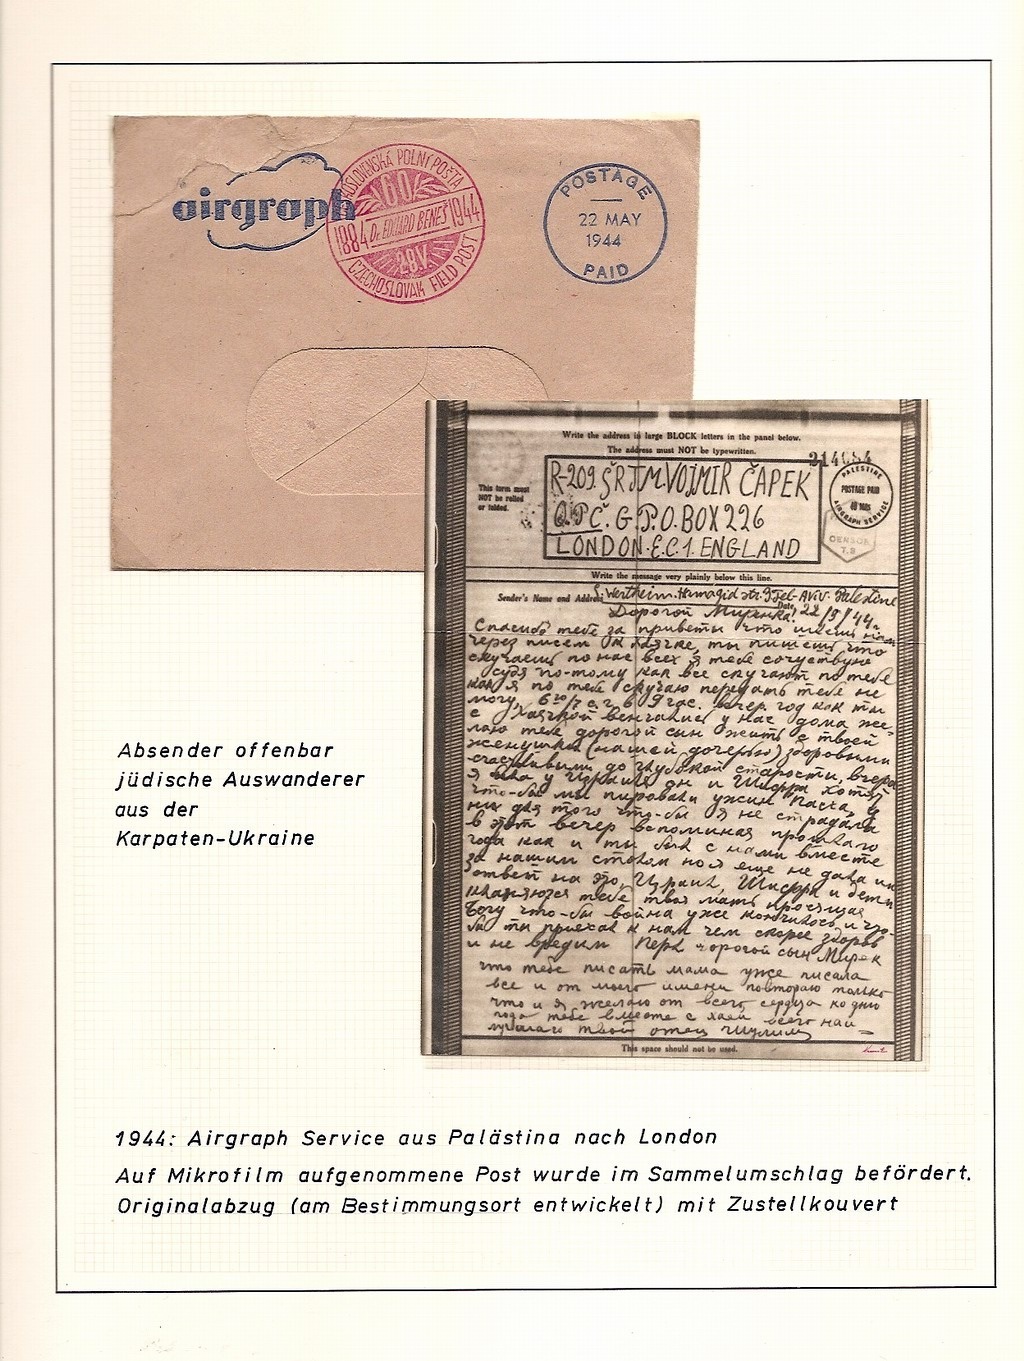 airgraph
ČESKOSLOVENSKÁ POLNÍ POŠTA
60
1884 Dr. EDUARD BENEŠ 1944
28.V.
CZECHOSLOVAK FIELD POST
POSTAGE
22 MAY
1944
PAID
Write the address in large BLOCK letters in the panel below.
The address must NOT be typewritten.
214084
This form must
NOT be rolled
or folded.
R-209. ŠRTM. VOJMIR ČAPEK
Č. G.P.O. BOX 226
LONDON. E.C.1. ENGLAND
PALESTINE
POSTAGE PAID
MAY
AIRGRAPH SERVICE
CENSOR
T.8
Write the message very plainly below this line.
Sender's Name and Address S. Wertheim. Hamagid str. 9 Tel-Aviv. Palestine
Дорогой Миречка! Date 22/5/44.
Спасибо тебе за приветы что
через писем к Хаячке, ты пишешь что
скучаешь по нас всех я тебе сочуствую
судя по-тому как все скучают по тебе
как я по тебе скучаю передать тебе не
могу, в 9 час. вечер. год как ты
с Хаячкой венчались у нас дома же-
лаю тебе дорогой сын жить с твоей
женушкой (нашей дочерью) здоровыми
счастливыми до глубокой старости, вчера
я была у Израиля он и Шифра хотят
что-бы мы пировали ужин у
них для того что-бы я не страдала
в этот вечер вспоминая прошлого
года как и ты был с нами вместе
за нашим столом но я еще не дала им
ответ на это, Израиль, Шифра и дети
кланяются тебе, твоя мать просящая
Богу что-бы война уже кончилось и что-
бы ты приехал к нам чем скорее здоров
и не вредим дорогой сын Мирек
что тебе писать мама уже писала
все и от моего имени повторяю только
что и я желаю от всего сердца ко дню
года тебе вместе с Хаей всего наи-
лучшаго твой отец
This space should not be used.
Absender offenbar
jüdische Auswanderer
aus der
Karpaten-Ukraine
1944: Airgraph Service aus Palästina nach London
Auf Mikrofilm aufgenommene Post wurde im Sammelumschlag befördert.
Originalabzug (am Bestimmungsort entwickelt) mit Zustellkouvert